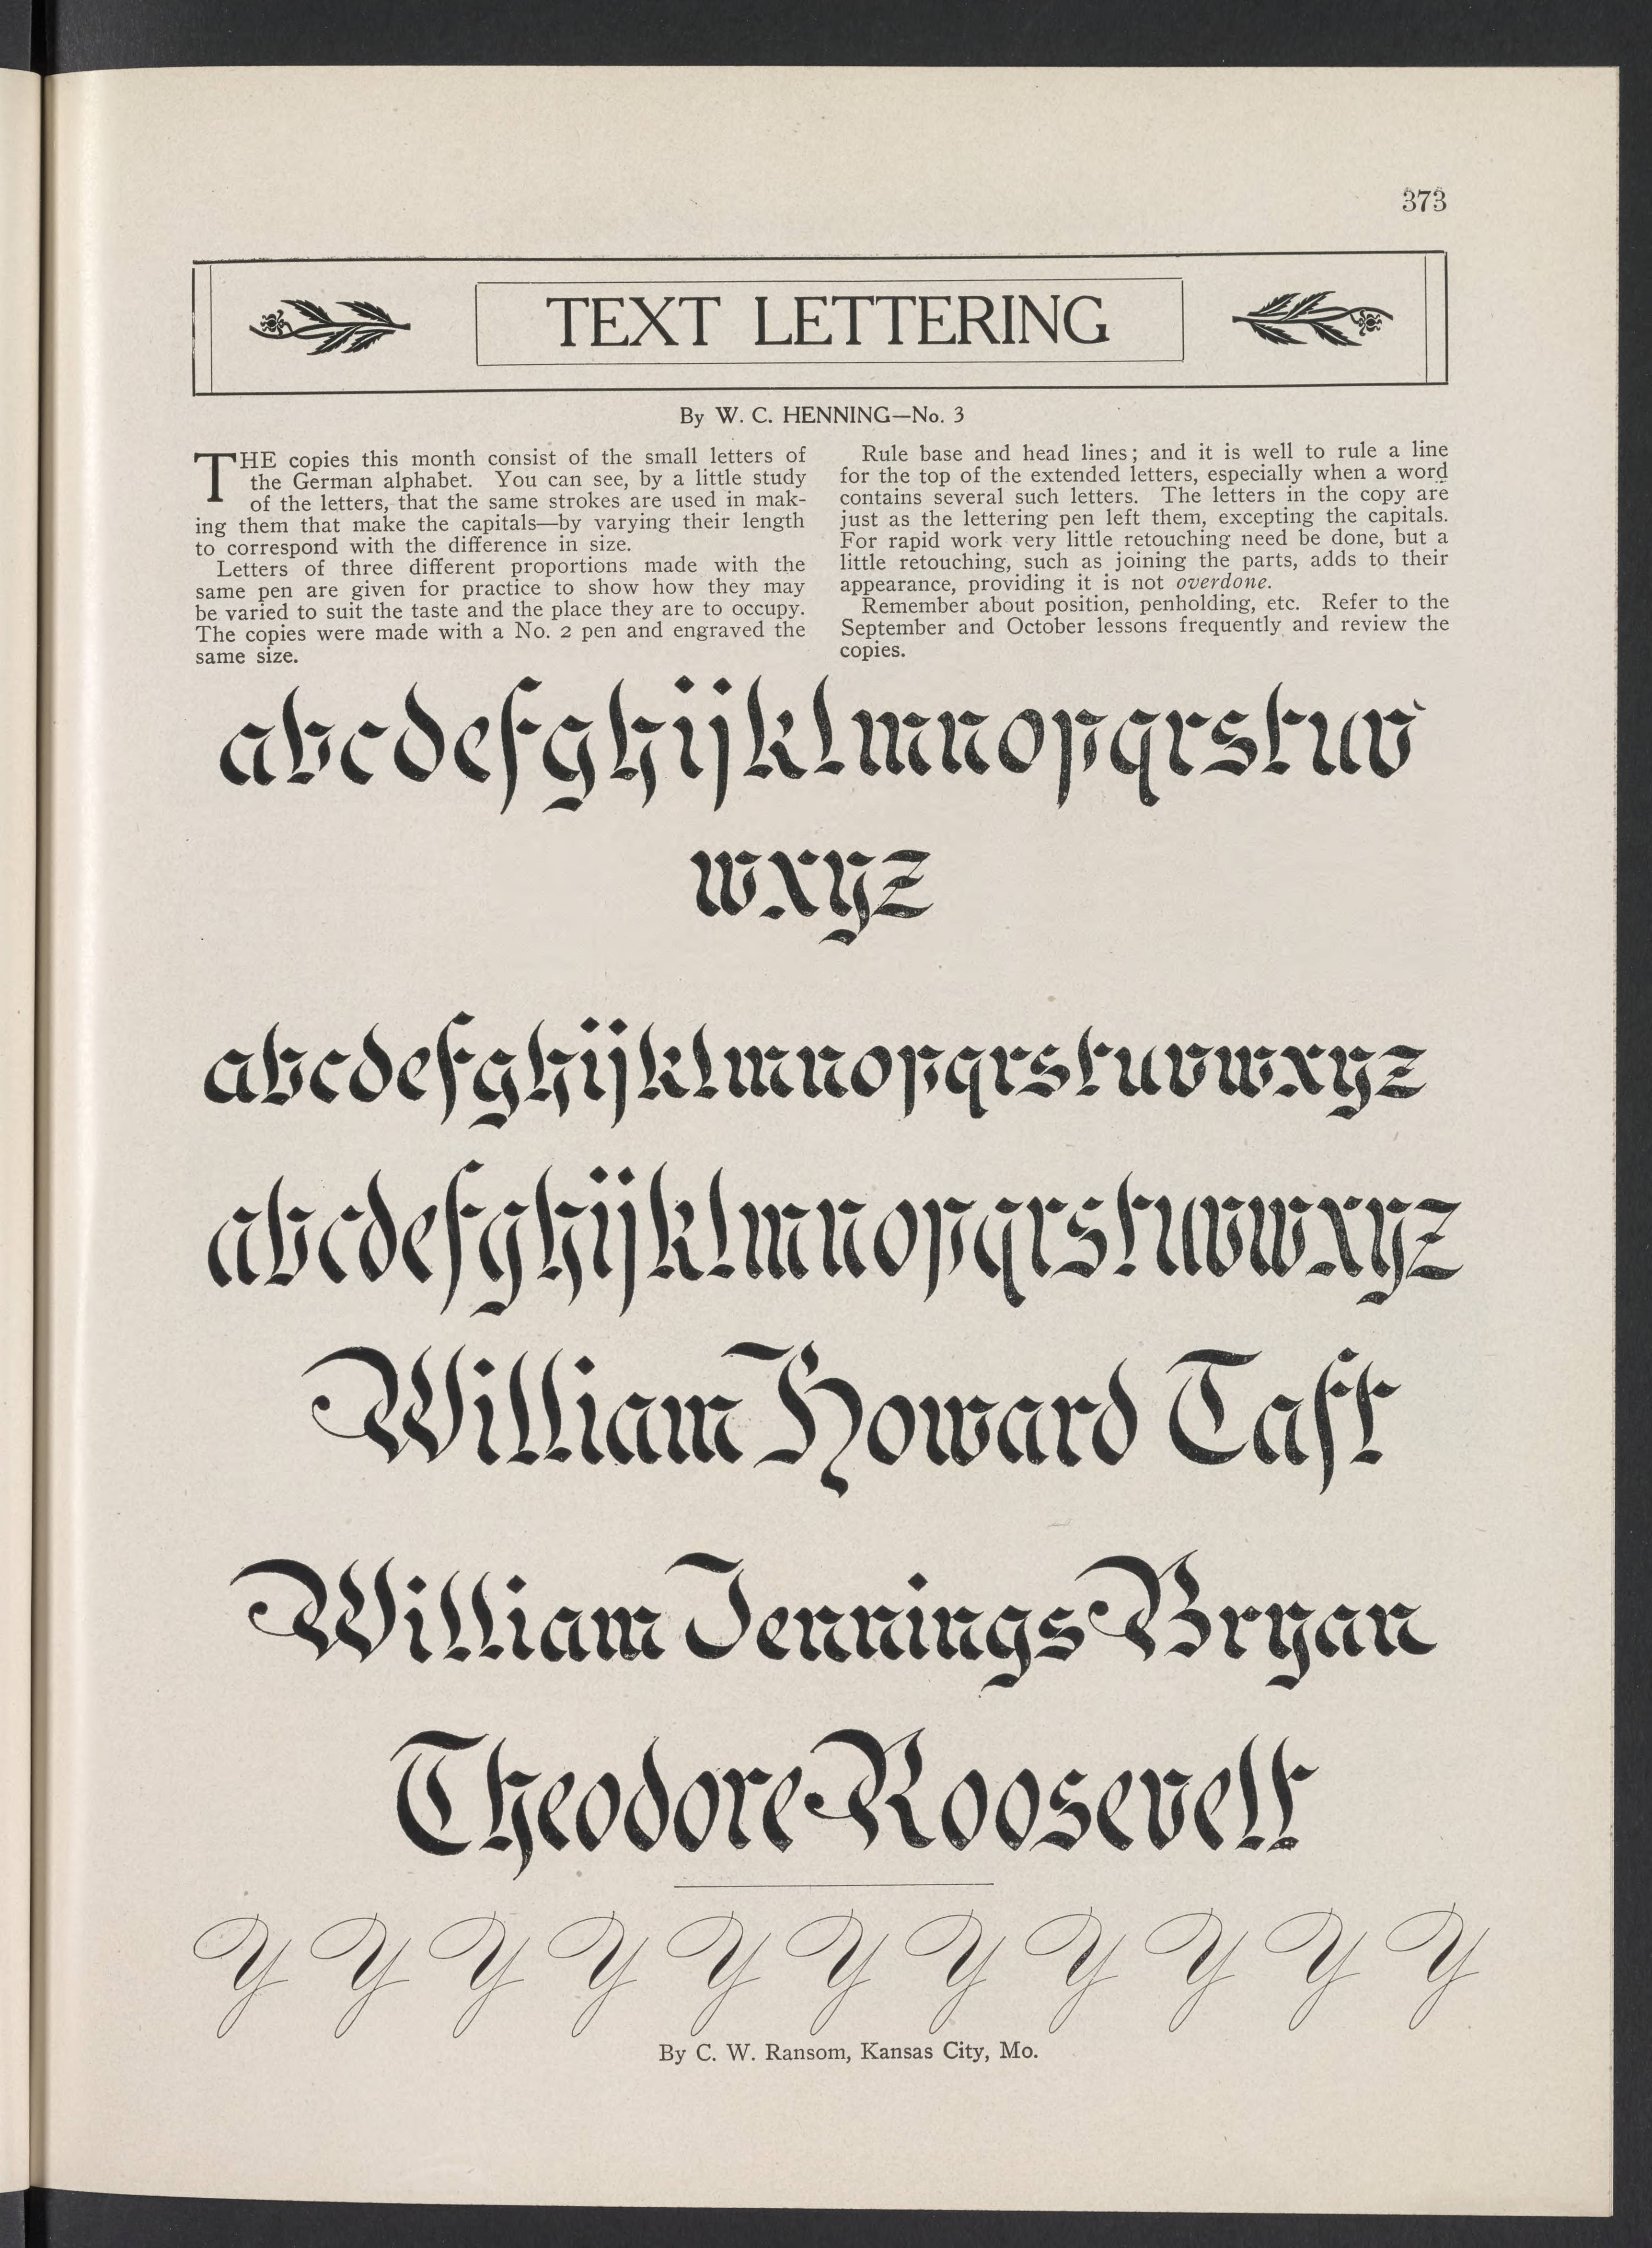 373
TEXT LETTERING
By W. C. HENNING—No. 3
THE copies this month consist of the small letters of
the German alphabet. You can see, by a little study
of the letters, that the same strokes are used in mak-
ing them that make the capitals—by varying their length
to correspond with the difference in size.
Letters of three different proportions made with the
same pen are given for practice to show how they may
be varied to suit the taste and the place they are to occupy.
The copies were made with a No. 2 pen and engraved the
same size.
Rule base and head lines; and it is well to rule a line
for the top of the extended letters, especially when a word
contains several such letters. The letters in the copy are
just as the lettering pen left them, excepting the capitals.
For rapid work very little retouching need be done, but a
little retouching, such as joining the parts, adds to their
appearance, providing it is not overdone.
Remember about position, penholding, etc. Refer to the
September and October lessons frequently and review the
copies.
abcdefghijklmnopqrstuv
wxyz
abcdefghijklmnopqrstuvwxyz
abcdefghijklmnopqrstuvwxyz
William Howard Taft
William Jennings Bryan
Theodore Roosevelt
Y Y Y Y Y Y Y Y Y Y Y
By C. W. Ransom, Kansas City, Mo.